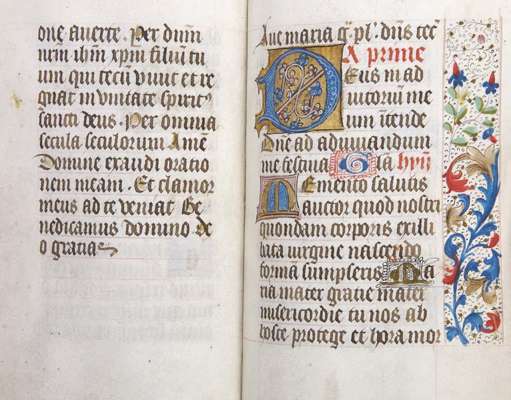 one auerte. Per dnm̄
nrm̄ ihm̄ xpm̄ filiū tu
um qui tecū viuit et re
gnat in vnitate spiritꝰ
sancti deus. Per omnia
secula seculorum Amē
Domine exaudi oratio
nem meam. Et clamor
meus ad te veniat Be
nedicamus domino de
o gratias
Aue maria g̃ pl̃ dñs tec̃
A prime
Deus in ad
iutorium me
um ītende
Dñe ad adiuuandum
me festina Gla hyn
Memento salutis
auctor quod nostri
quondam corporis ex illi
bata virgine nascendo
formā sumpseris Ma
ria mater gratie mater
misericordie tu nos ab
hoste protege et hora mor